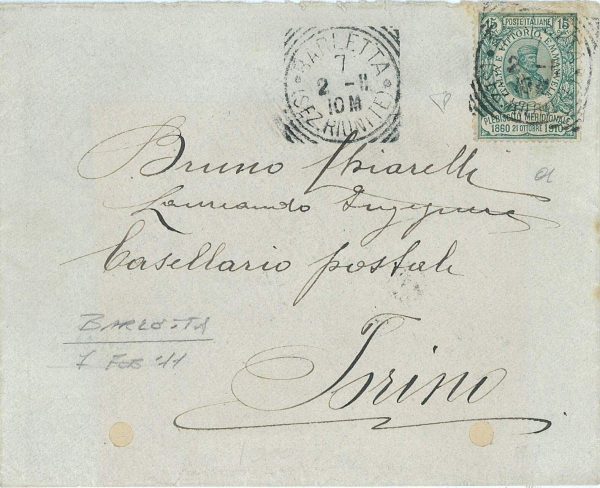 BARLETTA
7
2 - 11
10 M
(SEZ. RIUNITE)
15 POSTE ITALIANE 15
ITALIA E VITTORIO EMANUELE
PLEBISCITO MERIDIONALE
1860 21 OTTOBRE 1910
Bruno Chiarelli
Laureando Ingegnere
Casellario postale
Torino
BARLETTA
7 FEB '11